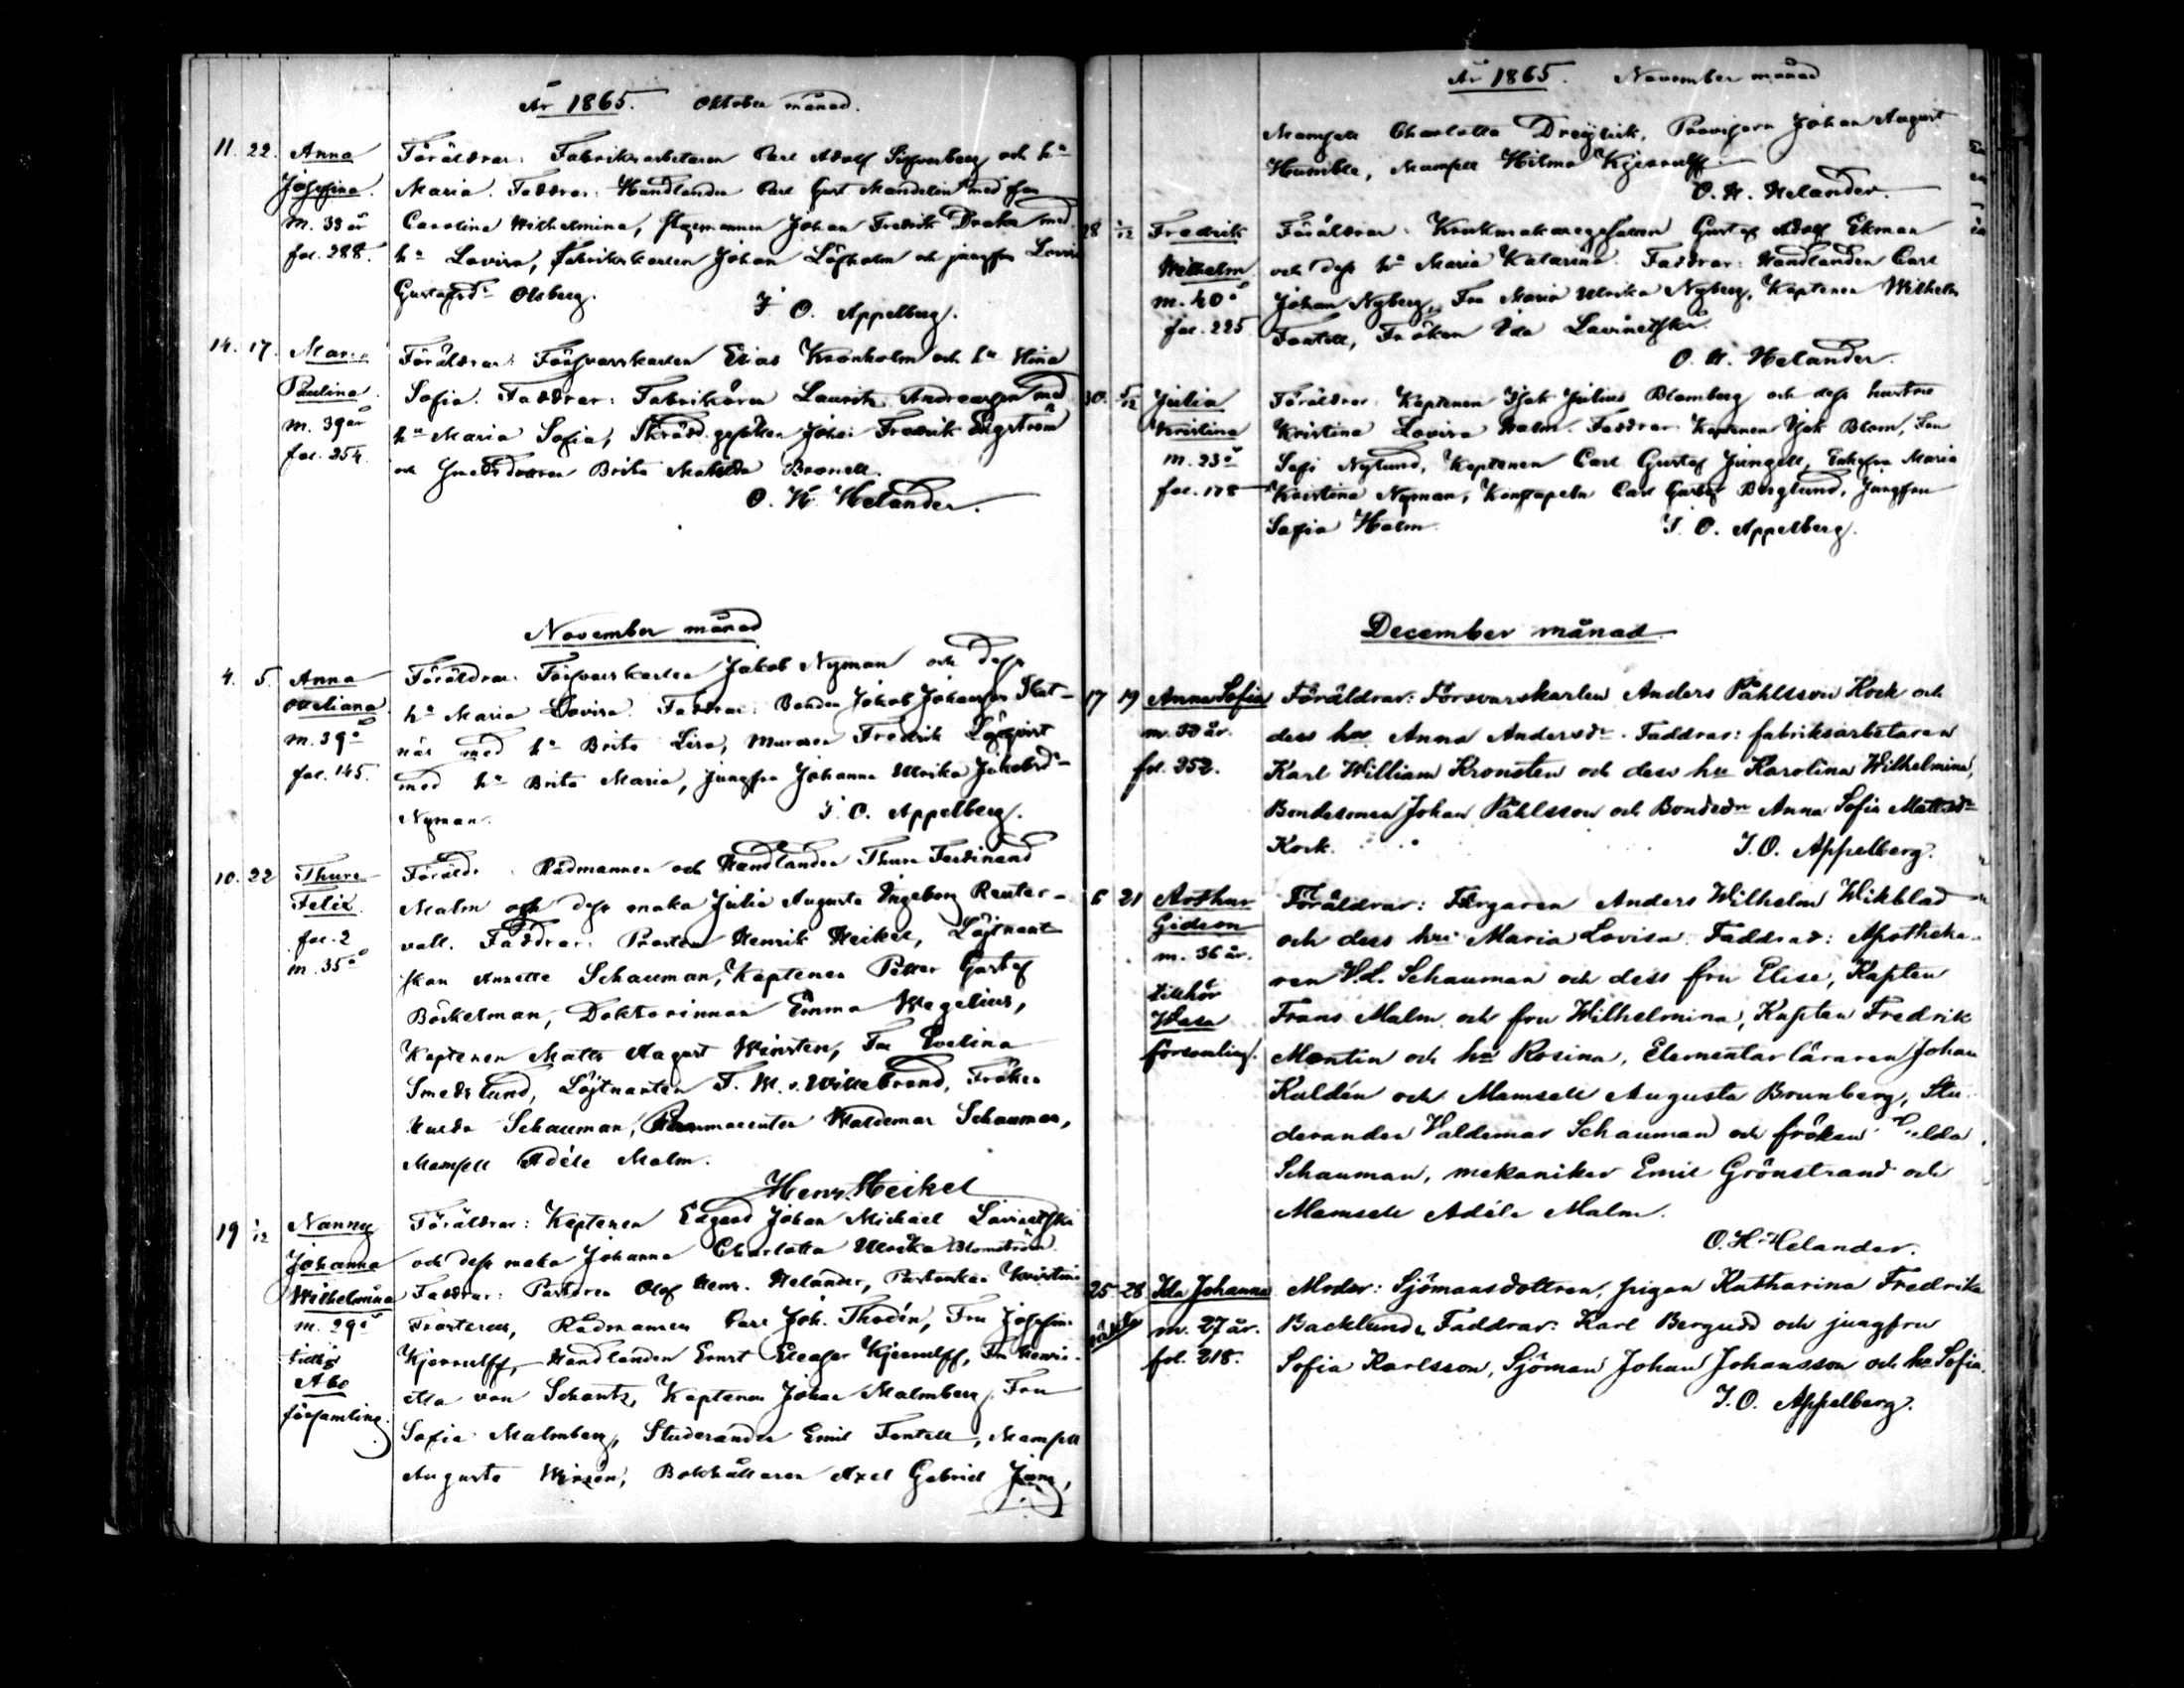 År 1865. Oktober månad.
11. 22. Anna Föräldrar: Fabriksarbetaren Carl Adolf och hu
Josefina. Maria. Faddrar: Handlanden Carl Gust Mandelin med fru
m. 33 år Carolina Wilhelmina, Johan Fredrik Draka med
fol. 288. hu Lovisa, Fabrikskarlen Johan Löfholm och jungfru Lovisa
Gustafsdr Olsberg. J. O. Appelberg.
14. 17. Maria Föräldrar: Försvarskarlen Elias Kronholm och hu Stina
Paulina. Sofia. Faddrar: Fabrikören Laurits Andreassen med
m. 39 år hu Maria Sofia, Johan Fredrik Engström
fol. 254. och Brita Matilda
O. H. Helander.
November månad
4. 5. Anna Föräldrar: Försvarskarlen Jakob Nyman och dess
hu Maria Lovisa. Faddrar: Bonden Jakob Johansson Slat-
m. 39 år när med hu Brita Lisa, Muraren Fredrik Löfqvist
fol. 145. med hu Brita Maria, jungfru Johanna Ulrika Jakobsdr
Nyman. J. O. Appelberg.
10. 22 Thure Föräldr. Rådmannen och Handlanden Thure Ferdinand
Felix. Malm och dess maka Julia Augusta Ingeborg Reuter-
fol. 2 vall. Faddrar: Prosten Henrik Heikel, Löjtnant-
m. 35 år skan Annette Schauman, Kaptenen Petter Gustaf
Böckelman, Doktorinnan Emma Wegelius,
Kaptenen Matts August Weinsten, Fru Evelina
Smedslund, Löjtnanten F. W. v. Willebrand, Fröken
Hulda Schauman, Farmaceuten Waldemar Schauman,
Mamsell Adéle Malm.
Henr. Heikel
19 1/12 Nanny Föräldrar: Kaptenen Edgard Johan Michael Lavinetski
Johanna och dess maka Johanna Charlotta Ulrika Blomström.
Wilhelmina Faddrar: Pastorn Olof Henr. Helander, Pastorskan Kristina
m. 29 år Frosterus, Rådmannen Carl Joh. Thodén, Fru Josefina
tillhör Kjerrulff, Handlanden Ernst Eleasar Kjerrulff, Fru Henri-
Åbo etta von Schantz, Kaptenen Johan Malmberg, Fru
församling. Sofia Malmberg, Studeranden Emil Fontell, Mamsell
Augusta Wirzén, Bokhållaren Axel Gabriel Jung,
År 1865. November månad
Mamsell Charlotta Dreijlick, Provisorn Johan August
Humble, Mamsell Hilma Kjerrulff
O. H. Helander.
28 1/12 Fredrik Föräldrar: Krukmakaregesällen Gustaf Adolf Ekman
Wilhelm. och dess hu Maria Katarina. Faddrar: Handlanden Carl
m. 40 år Johan Nyberg, Fru Maria Ulrika Nyberg, Kaptenen Wilhelm
fol. 225 Fontell, Fröken Ida Lavinetski.
O. H. Helander.
30. 5/12 Julia Föräldrar: Kaptenen Isak Julius Blomberg och dess hustru
Kristina Kristina Lovisa Holm. Faddrar: Kaptenen Isak Blom, Fru
m. 23 år Sofi Nylund, Kaptenen Carl Gustaf Jungell, Enkefru Maria
fol. 178 Kristina Nyman, Konstapeln Carl Gustaf Berglund, Jungfru
Sofia Holm. J. O. Appelberg.
December månad
17 19 Anna Sofia Föräldrar: Försvarskarlen Anders Påhlsson Kock och
dess hu Anna Andersdr. Faddrar: fabriksarbetaren
fol. 352. Karl William Kronsten och dess hu Karolina Wilhelmina,
Bondesonen Johan Påhlsson och Bondedr Anna Sofia Mattsdr
Kock. J. O. Appelberg.
6 21 Arthur Föräldrar: Färgaren Anders Wilhelm Wikblad
Gideon och dess hu Maria Lovisa. Faddrar: Apotheka-
m. 36 år. ren V.L. Schauman och dess fru Elise, Kapten
tillhör Frans Malm och fru Wilhelmina, Kapten Fredrik
Wasa Montin och hu Rosina, Elementarläraren Johan
församling. Kuldén och Mamsell Augusta Brunberg, Stu-
deranden Valdemar Schauman och fröken Hulda
Schauman, mekaniker Emil Grönstrand och
Mamsell Adéle Malm.
O. H. Helander.
25 28 Ida Johanna Moder: Sjömansdottren, pigan Katharina Fredrika
oäkta m. 27 år. Backlund. Faddrar: Karl Bergudd och jungfru
fol. 218. Sofia Karlsson, Sjöman Johan Johansson och hu Sofia.
J. O. Appelberg.